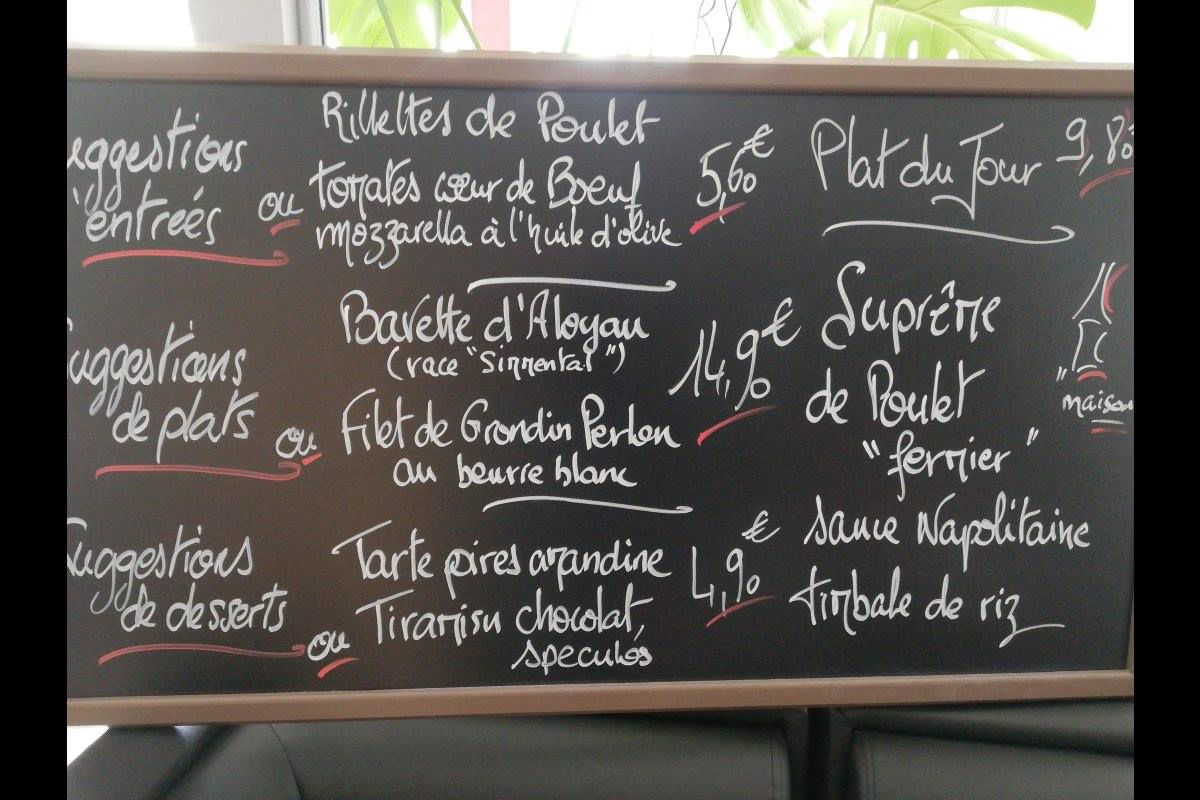 uggestions
d'entrées
ou
Rillettes de Poulet
tomates cœur de Bœuf
mozzarella à l'huile d'olive
5,60€
uggestions
de plats
ou
Bavette d'Aloyau
(race "Simmental")
Filet de Grondin Perlon
au beurre blanc
14,90€
Suggestions
de desserts
ou
Tarte poires amandine
Tiramisu chocolat,
speculos
4,90€
Plat du Jour 9,80
Suprême
de Poulet
"fermier"
sauce Napolitaine
timbale de riz
"maison